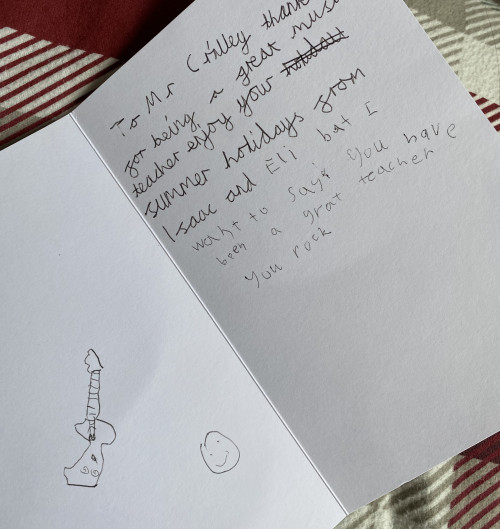 To Mr Crilley thank
for being a great music
teacher enjoy your
summer holidays from
Isaac and Eli bat I
waht to say you have
been a grat teacher
you rock